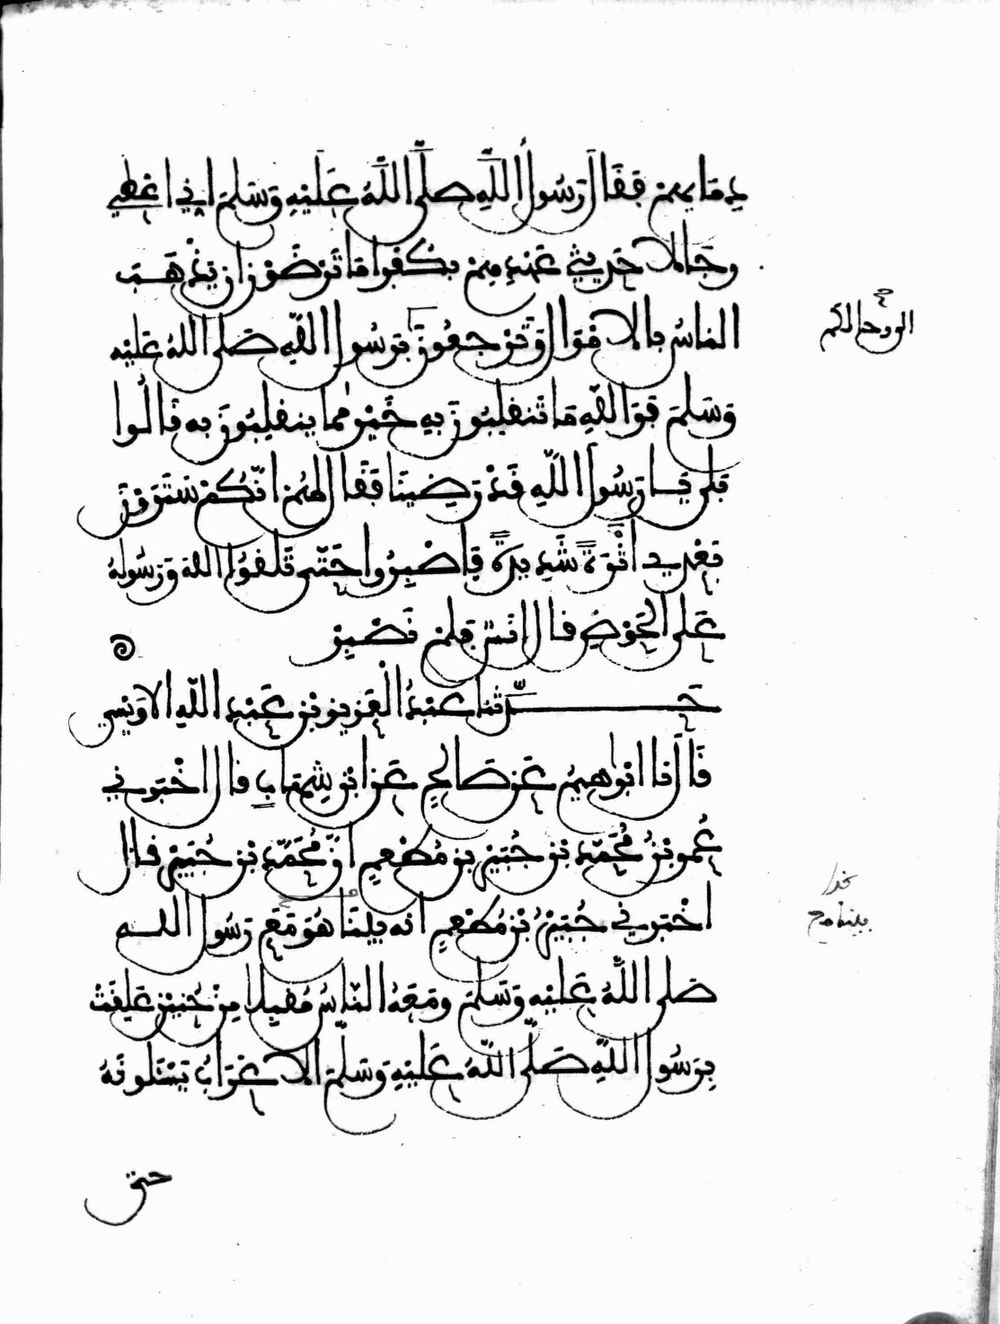 دمايهم فقال رسول الله صلى الله عليه وسلم اني اعطي
رجالا حديثي عهدهم بكفر اما ترضون ان يذهب
الناس بالاموال وترجعون برسول الله صلى الله عليه
وسلم فوالله ما تنقلبون به خير مما ينقلبون به قالوا
بلى يا رسول الله قد رضينا فقال لهم انكم سترون
بعدي اثرة شديدة فاصبروا حتى تلقوا الله ورسوله
على الحوض قال انس فلم نصبر
حدثنا عبد العزيز بن عبد الله الاويسي
قال نا ابراهيم عن صالح عن ابن شهاب قال اخبرني
عمر بن محمد بن جبير بن مطعم ان محمد بن جبير قال
اخبرني جبير بن مطعم انه بينا هو مع رسول الله
صلى الله عليه وسلم ومعه الناس مقبلا من حنين علقت
برسول الله صلى الله عليه وسلم الاعراب يسئلونه
حتى
الى رحالكم
بينما